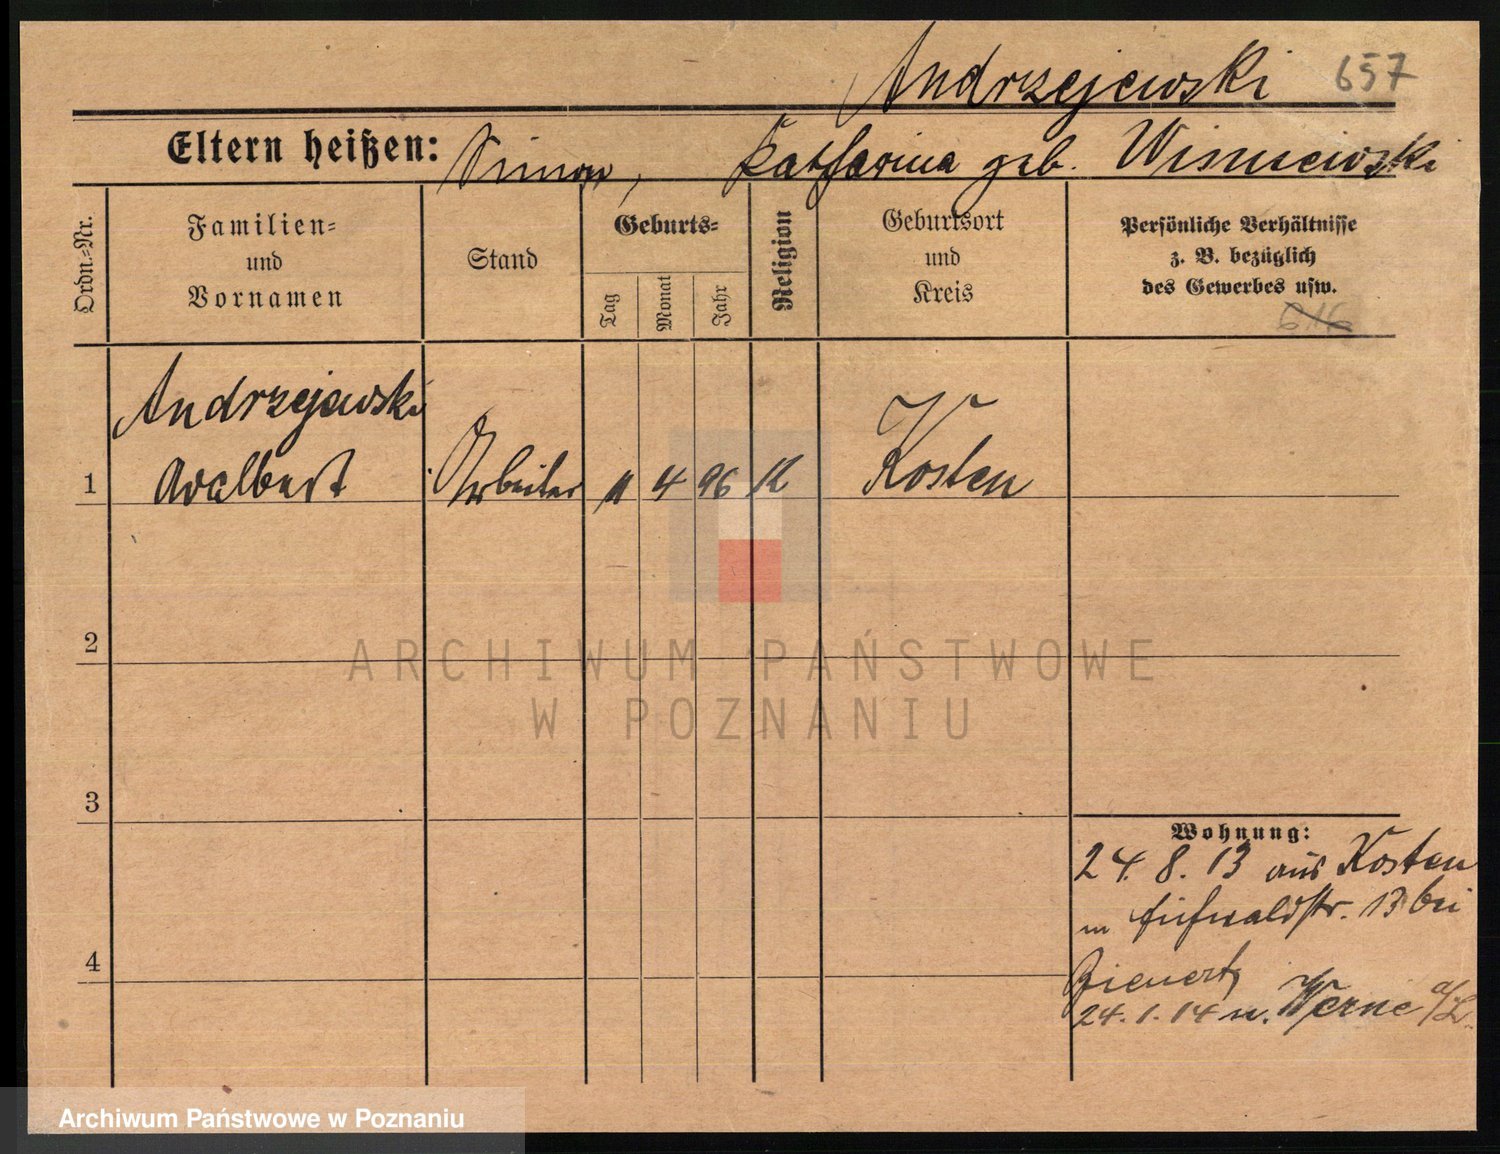 Andrzejewski 657
Eltern heißen: Simon, Katharina geb. Wisniewski
Ordn.-Nr.
Familien-
und
Vornamen
Stand
Geburts-
Tag
Monat
Jahr
Religion
Geburtsort
und
Kreis
Persönliche Verhältnisse
z. B. bezüglich
des Gewerbes usw.
616
Andrzejewski
1 Adalbert Arbeiter 11 4 96 K Kosten
2
ARCHIWUM PAŃSTWOWE
W POZNANIU
3
Wohnung:
24. 8. 13 aus Kosten
n 13 bei
4
24. 1. 14 n. Werne a/L.
Archiwum Państwowe w Poznaniu